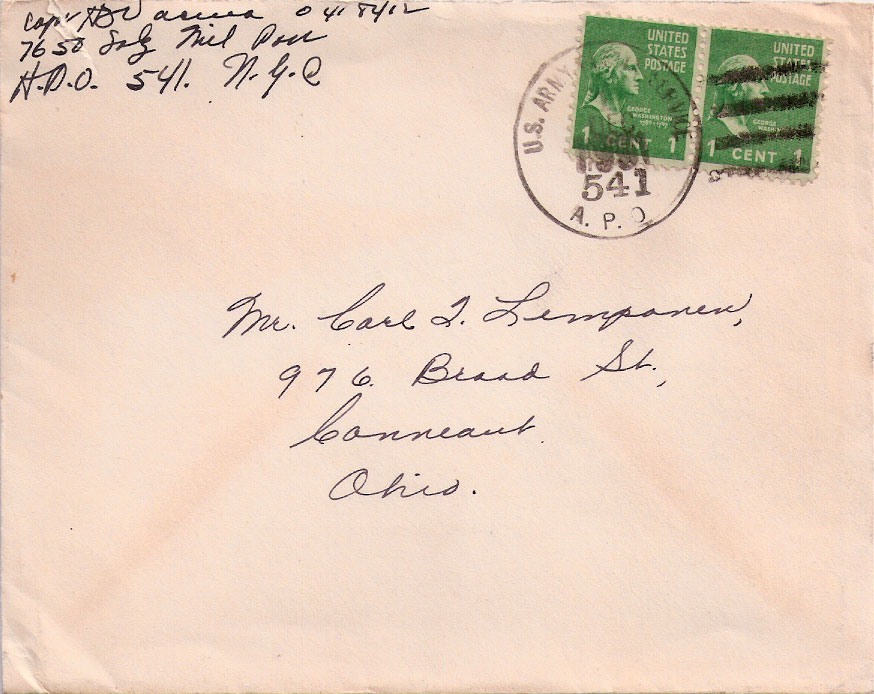 Capt
7650 Salz Mil Post
A.P.O. 541. N.Y.C
UNITED STATES POSTAGE
GEORGE WASHINGTON
1 CENT 1
UNITED STATES POSTAGE
GEORGE
1 CENT 1
U.S. ARMY
541
A. P. O.
Mr. Carl I. Lemponen,
976 Broad St.,
Conneaut
Ohio.